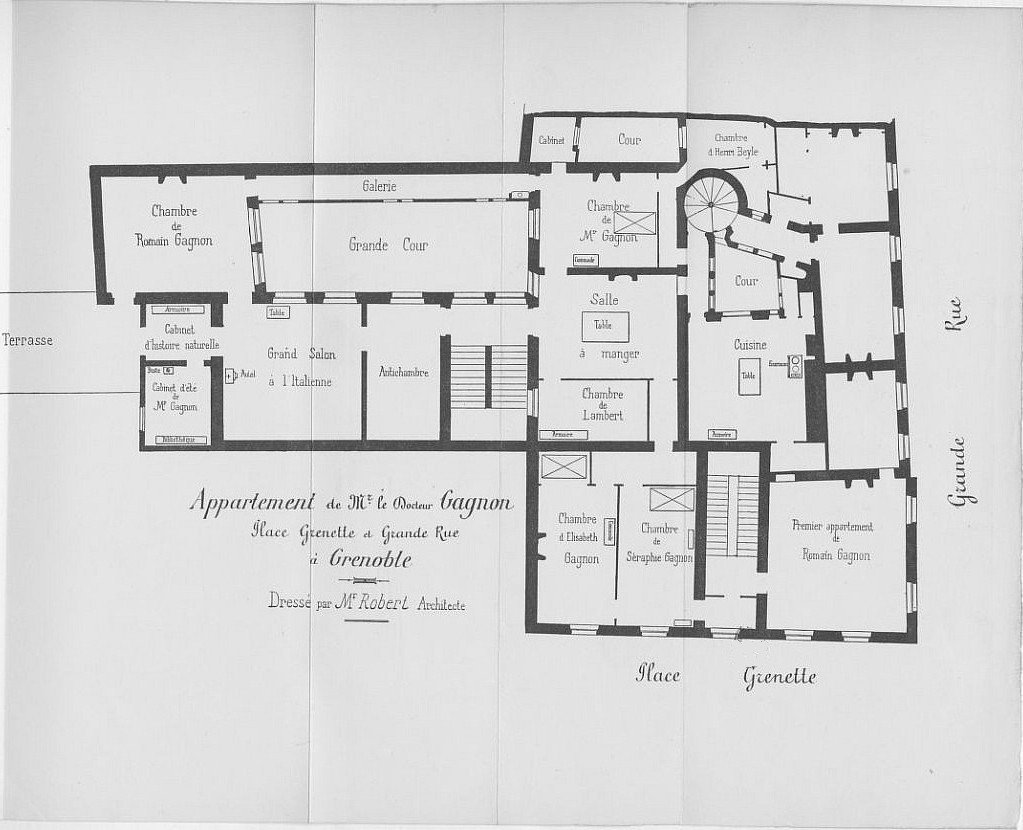 Cabinet
Cour
Chambre
d'Henri Beyle
Galerie
Chambre
de
Romain Gagnon
Grande Cour
Chambre
de
Mr Gagnon
Commode
Cour
Terrasse
Armoire
Cabinet
d'histoire naturelle
Table
Grand Salon
à l'Italienne
Autel
Antichambre
Salle
Table
à manger
Cuisine
Table
Fourneau
Buste
Cabinet d'été
de
Mr Gagnon
Bibliothèque
Chambre
de
Lambert
Armoire
Armoire
Rue
Grande
Chambre
d'Elisabeth
Gagnon
Commode
Chambre
de
Séraphie Gagnon
Premier appartement
de
Romain Gagnon
Appartement de Mr le Docteur Gagnon
Place Grenette et Grande Rue
à Grenoble
Dressé par Mr Robert Architecte
Place Grenette